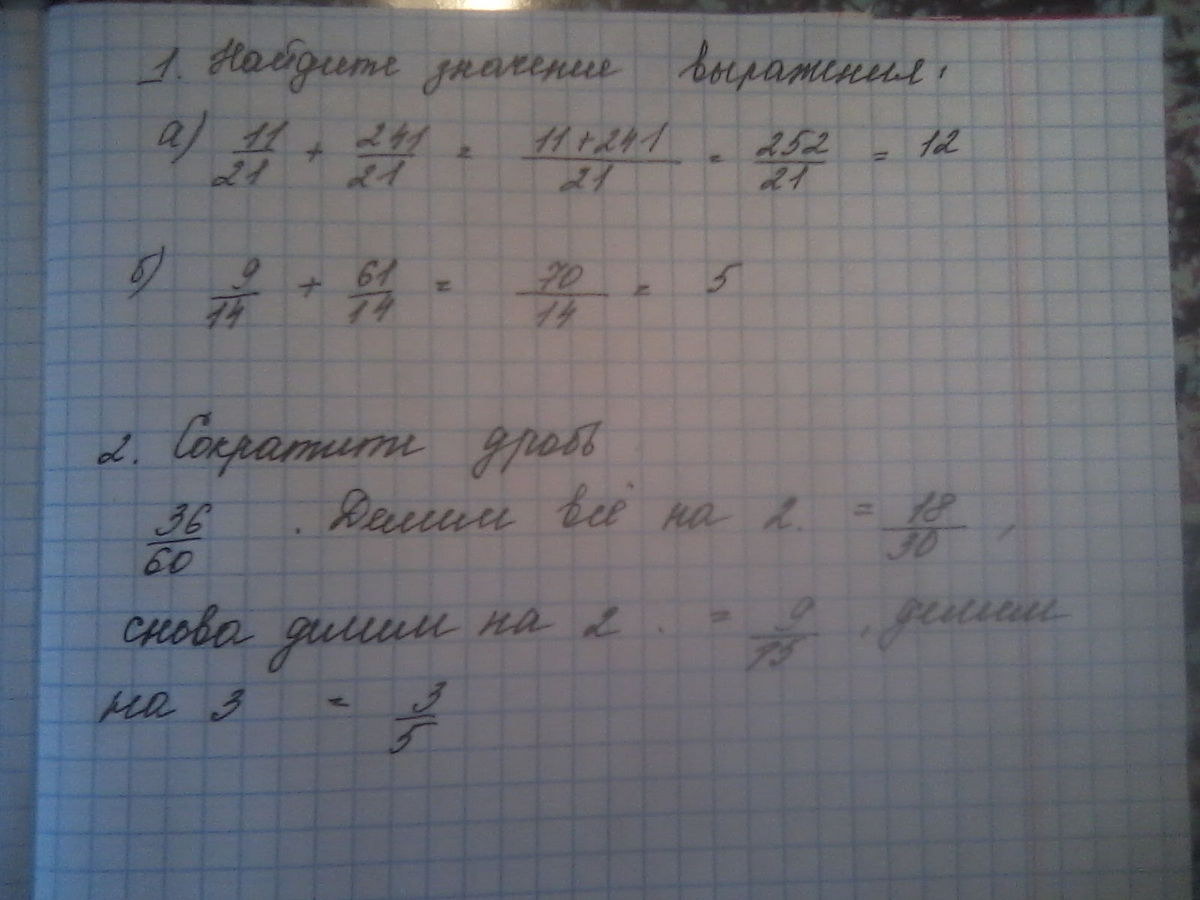 1. Найдите значение выражения.
а) 11/21 + 241/21 = 11+241/21 = 252/21 = 12
б) 9/14 + 61/14 = 70/14 = 5
2. Сократите дробь
36/60 . Делим всё на 2. = 18/30 ,
снова делим на 2 . = 9/15 , делим
на 3 = 3/5